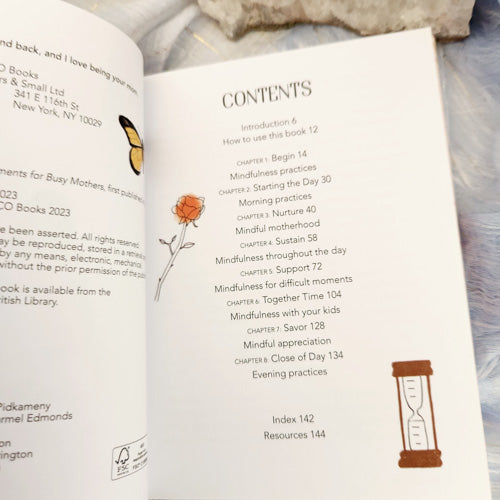 nd back, and I love being your mom.
O Books
rs & Small Ltd
341 E 116th St
New York, NY 10029
ments for Busy Mothers, first published
2023
CO Books 2023
e been asserted. All rights reserved.
ay be reproduced, stored in a retrieval
by any means, electronic, mechanical
without the prior permission of the pub
ook is available from the
itish Library.
Pidkameny
rmel Edmonds
on
rington
FSC
CONTENTS
Introduction 6
How to use this book 12
CHAPTER 1: Begin 14
Mindfulness practices
CHAPTER 2: Starting the Day 30
Morning practices
CHAPTER 3: Nurture 40
Mindful motherhood
CHAPTER 4: Sustain 58
Mindfulness throughout the day
CHAPTER 5: Support 72
Mindfulness for difficult moments
CHAPTER 6: Together Time 104
Mindfulness with your kids
CHAPTER 7: Savor 128
Mindful appreciation
CHAPTER 8: Close of Day 134
Evening practices
Index 142
Resources 144